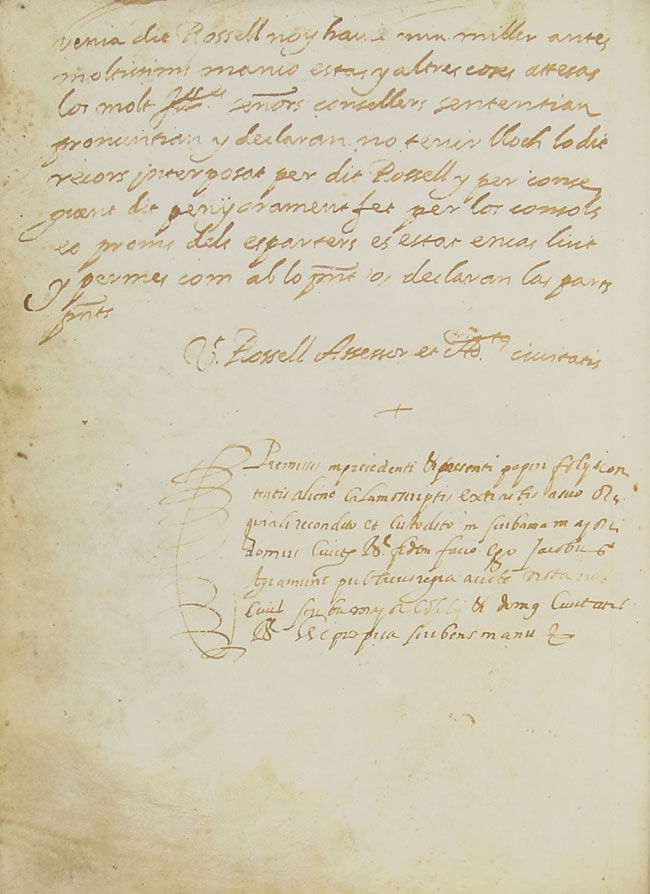 venia dit Rossell noy havie un miller antes
moltissims manco estas y altres coses atteses
los molt señors consellers sententian
pronuntian y declaran no tenir lloch lo dit
recors interposat per dit Rossell y per conse
guent dit penyorament fet per los consols
eo proms dels esparters es estat en cas licit
y permes com ab lo pnt o declaran las parts
pnts
Vt. Rossell Assessor et civitatis
Premissis in precedenti & presenti papiri foleis con
tentis aliene calamo scriptis extractis a suo ori
ginali recondito et custodito in scribania majori
domus Civitis Bar. fidem facio ego Jacobus
Agramunt publicus regia aucte notarius
Civis scriba major et domq Civitatis
Bar. hec propria scribens manu